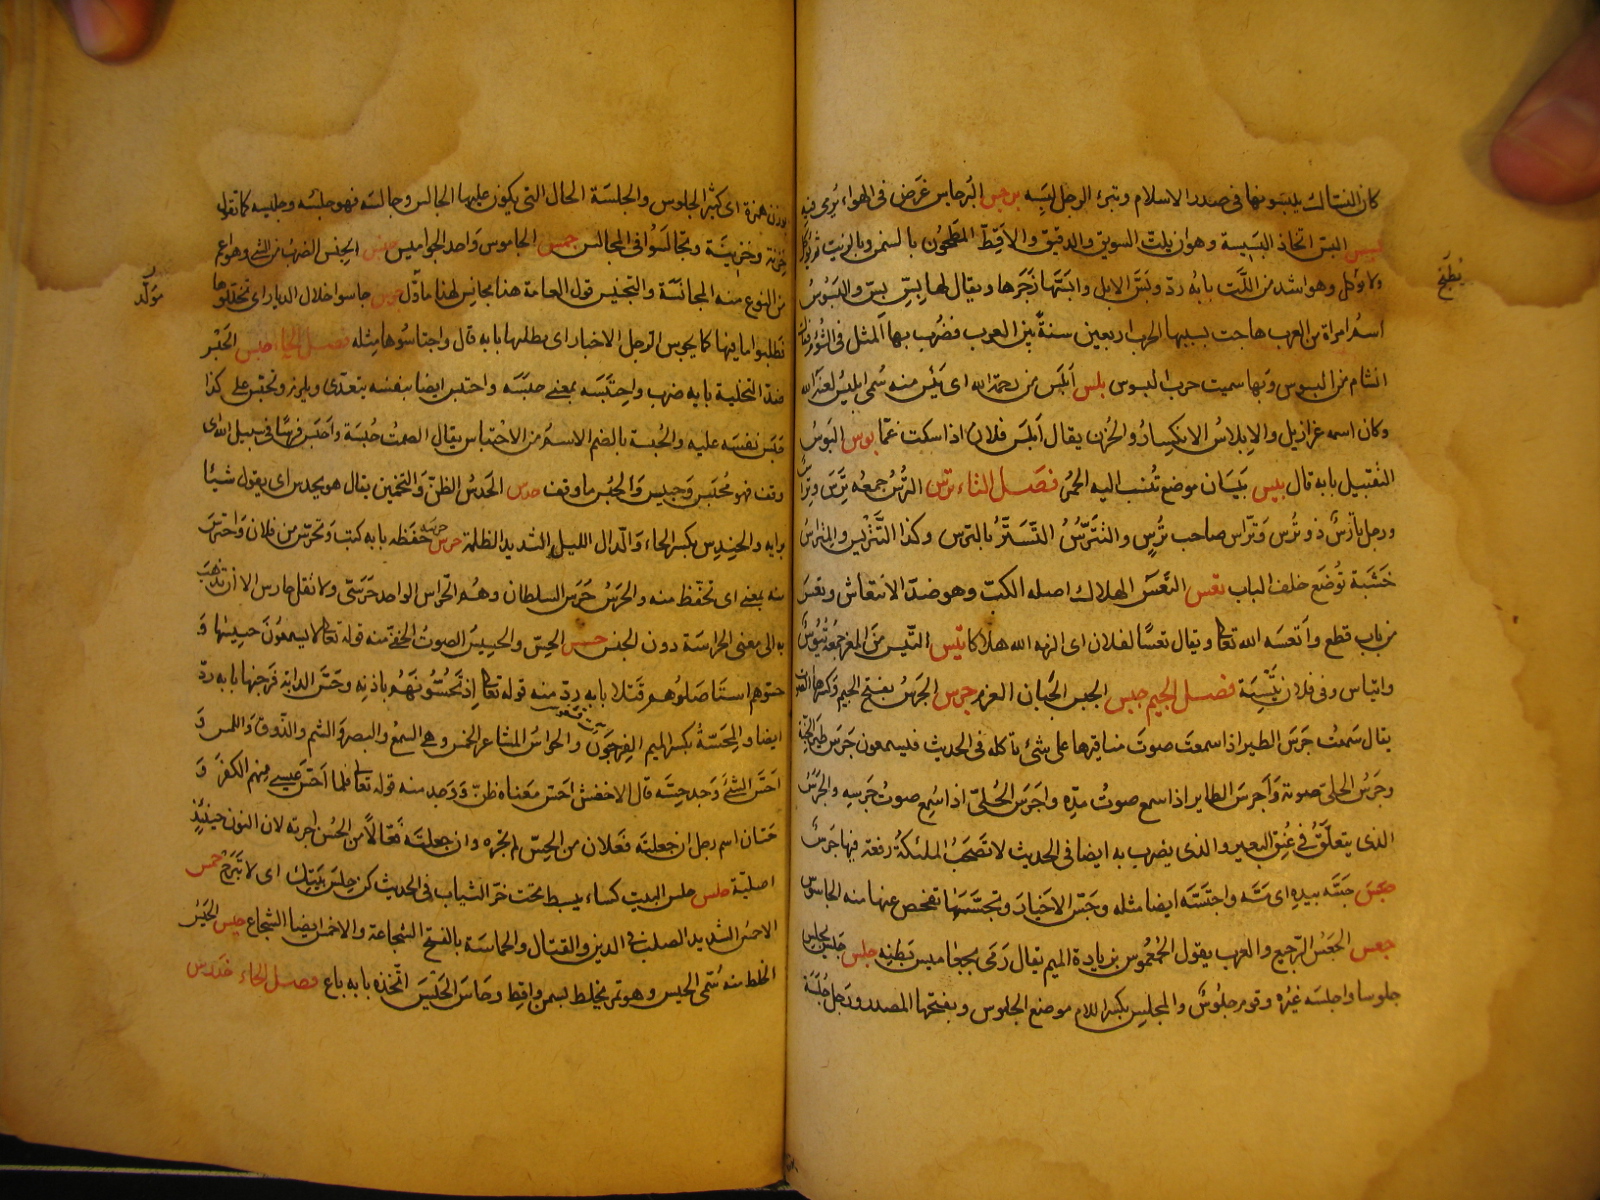 كان النساك يلبسونها فى صدر الاسلام وتبرء الرجل لبسه برجس البُرجاس غَرَض فى الهواء يُرمى فيه
بسس البسّ اتخاذ البَسِيسة وهو ان يلتّ السويق والدقيق والاَقِط المَطحُون بالسمن وبالزيت ثم يؤكل
ولا يؤكل وهو اشد من اللَّتّ بابه ردّ وبَسّ الابل وابَسَّها زَجَرها ويقال لها بِسّ بِسّ والبَسُوسُ
اسمُ امراة من العرب هاجت بسببها الحرب اربعين سنة بين العرب فضُرب بها المثل فى الشُؤم
اشام من البسوس وبها سميت حرب البسوس بلس اَبلَسَ من رحمة الله اى يَئِسَ منه سُمى ابليسُ لعنه الله
وكان اسمه عزازيل والاِبلاسُ الانكِسارُ والحُزن يقال اَبلَسَ فلان اذا سكت غمّا بوس البَوسُ
التقبيل بابه قال بيس بَيسَان موضع تُنسب اليه الخمر فصل التاء ترس الترُس جمعه تِرَسَة وتِراسٌ
ورجل تارِسٌ ذو تُرس وتَرّاس صاحب تُرسٍ والتتَرّسُ التَسَتّرُ بالترس وكذا التَّتْريس والمَترَسُ
خَشَبة تُوضَع خلف الباب تعس التَّعسُ الهلاك اصله الكَبّ وهو ضدّ الانتعاش وتعَسَ
من باب قطع واَتعسَه الله تعالى ويقال تعسًا لفلان اى الزمه الله هلاكا تيس التَّيس من المعز جمعُه تُيُوسٌ
واتياس وفى فلان تَيْسِيّة فصل الجيم جبس الجبس الجَبان جرس الجَرسُ بفتح الجيم وكسرها الصوت
يقال سَمعتُ جَرسَ الطير اذا سمعتَ صوتَ مناقيرها على شئ تاكله فى الحديث فيسمعون جَرسَ طير الجنة
وجَرسُ الحلىّ صوته وَاَجرسَ الطاير اذا سمع صوتُ مرّه واجرَسَ الحُلىّ اذا سُمِع صوتُ جَرسِه والجَرَسُ
الذى يتعلّقُ فى عُنُق البعير والذى يضرب به ايضا فى الحديث لا تَصحَبُ الملئكةُ رفقة فيها جَرَسٌ
جسَسَ جَسَّه بيده اى مَسَّه واجتَسَّه ايضا مثله وجَسّ الاَخبارَ وتجسَّسَها تفحّص عنها منه الجاسوس
جعس الجَعسُ الرّجيع والعرب يقول الجُعمُوس بزيادة الميم يقال رَمَى بجعَاميس بَطنِه جلس جَلَسَ يجلِس
جلوسا واجلسَه غيرُه وقوم جلُوسٌ والمجلِس بكسر اللام موضع الجلوس وبفتحها المصدر ورَجل جُلَسَةٌ
يُطبَخ
بوزن هُمَزَة اى كثير الجلوس والجلسَة الحال التى يكون عليها الجالس وجالسَه فهو جِلسُه وجليسه كما تقول
خِدنه وخدِينُه وتجالَسُوا فى المجالس جمس الجاموس وَاحد الجواميس جنس الجِنس الضرب من الشئ وهو اعم
من النوع منه المجانَسَة والتجنيس وقول العامة هذا مجانِس لهذا مُوَلّد جوس جاسوا خلال الديار اى تخللوها
فطلبوا ما فيها كما يجوس الرجل الاخبار اى يطلبها بابه قال واجتاسُوها مثله فصل الحاء حبس الحَبْس
ضدّ التخلية بابه ضرب واحتبَسَه بمعنى حبَسَه واحتبس ايضا بنفسه يتعدّى ويلزم وتحبّس على كذا
حَبَس نفسَه عليه والحُبسة بالضم الاسم من الاحتباس يقال الصمتُ حُبسَة واَحبَس فرسًا فى سبيل الله اى
وقف فهو مُحبَس وحبيس والحُبْس ما وقف حدس الحَدسُ الظنّ والتخمين يقال هو يحدِس اى يقول شيئا
برايه والحِندِس بكسر الحاء والدال الليل الشديد الظلمة حرس حرسَه حفَظه بابه كتب وتَحرّسَ من فلان واحترسَ
منه بمعنى اى تحفّظ منه والحَرَسُ حَرَس السلطان وهم الحُرّاس الواحد حَرَسىّ ولا تقل حارس الا ان تذهَب
به الى معنى الحراسَة دون الجنس حسس الحِسّ والحسيسُ الصوتُ الخفىّ منه قوله تعالى لا يسمعُونَ حسِيسَها وَ
حسّوهم استَاصَلوُهم قَتلا بابه ردّ منه قوله تعالى اذ تَحُسُّونَهُم باذنه وحَسّ الدابّة فَرجَنَها بابه ردّ
ايضا والمِحَسّةُ بكسر الميم الفِرجَون والحواسّ المشاعر الخمس وهى السمع والبصر والشم والذوق واللمس وَ
اَحسّ الشئَ وَجد حِسَّه قال الاخفش احسّ معناه ظنّ وَوَجد منه قوله تعالى فلما اَحسّ عيسى منهم الكفرَ وَ
حَسّان اسم رجل ان جعلته فَعلان من الحِسّ لم تجره وان جعلته فَعّالاً من الحُسن اجريته لان النون حينَئذٍ
اصليّة حلس حِلس البيت كساء يبسط تحت حُرّ الثياب فى الحديث كن حِلسَ بَيتِك اى لا تَبرَح حمس
الاحمَسُ الشديد الصلب فى الدين والقتال والحماسَة بالفتح الشجاعة والاحمَس ايضا الشجاع حيس الحَيْسُ
الخلط منه سُمّى الحيس وهو تمر يخلط بسمن واَقِط وحاسَ الحَيسَ اتّخذه بابه باع فصل الخاء خندرس
مولّد